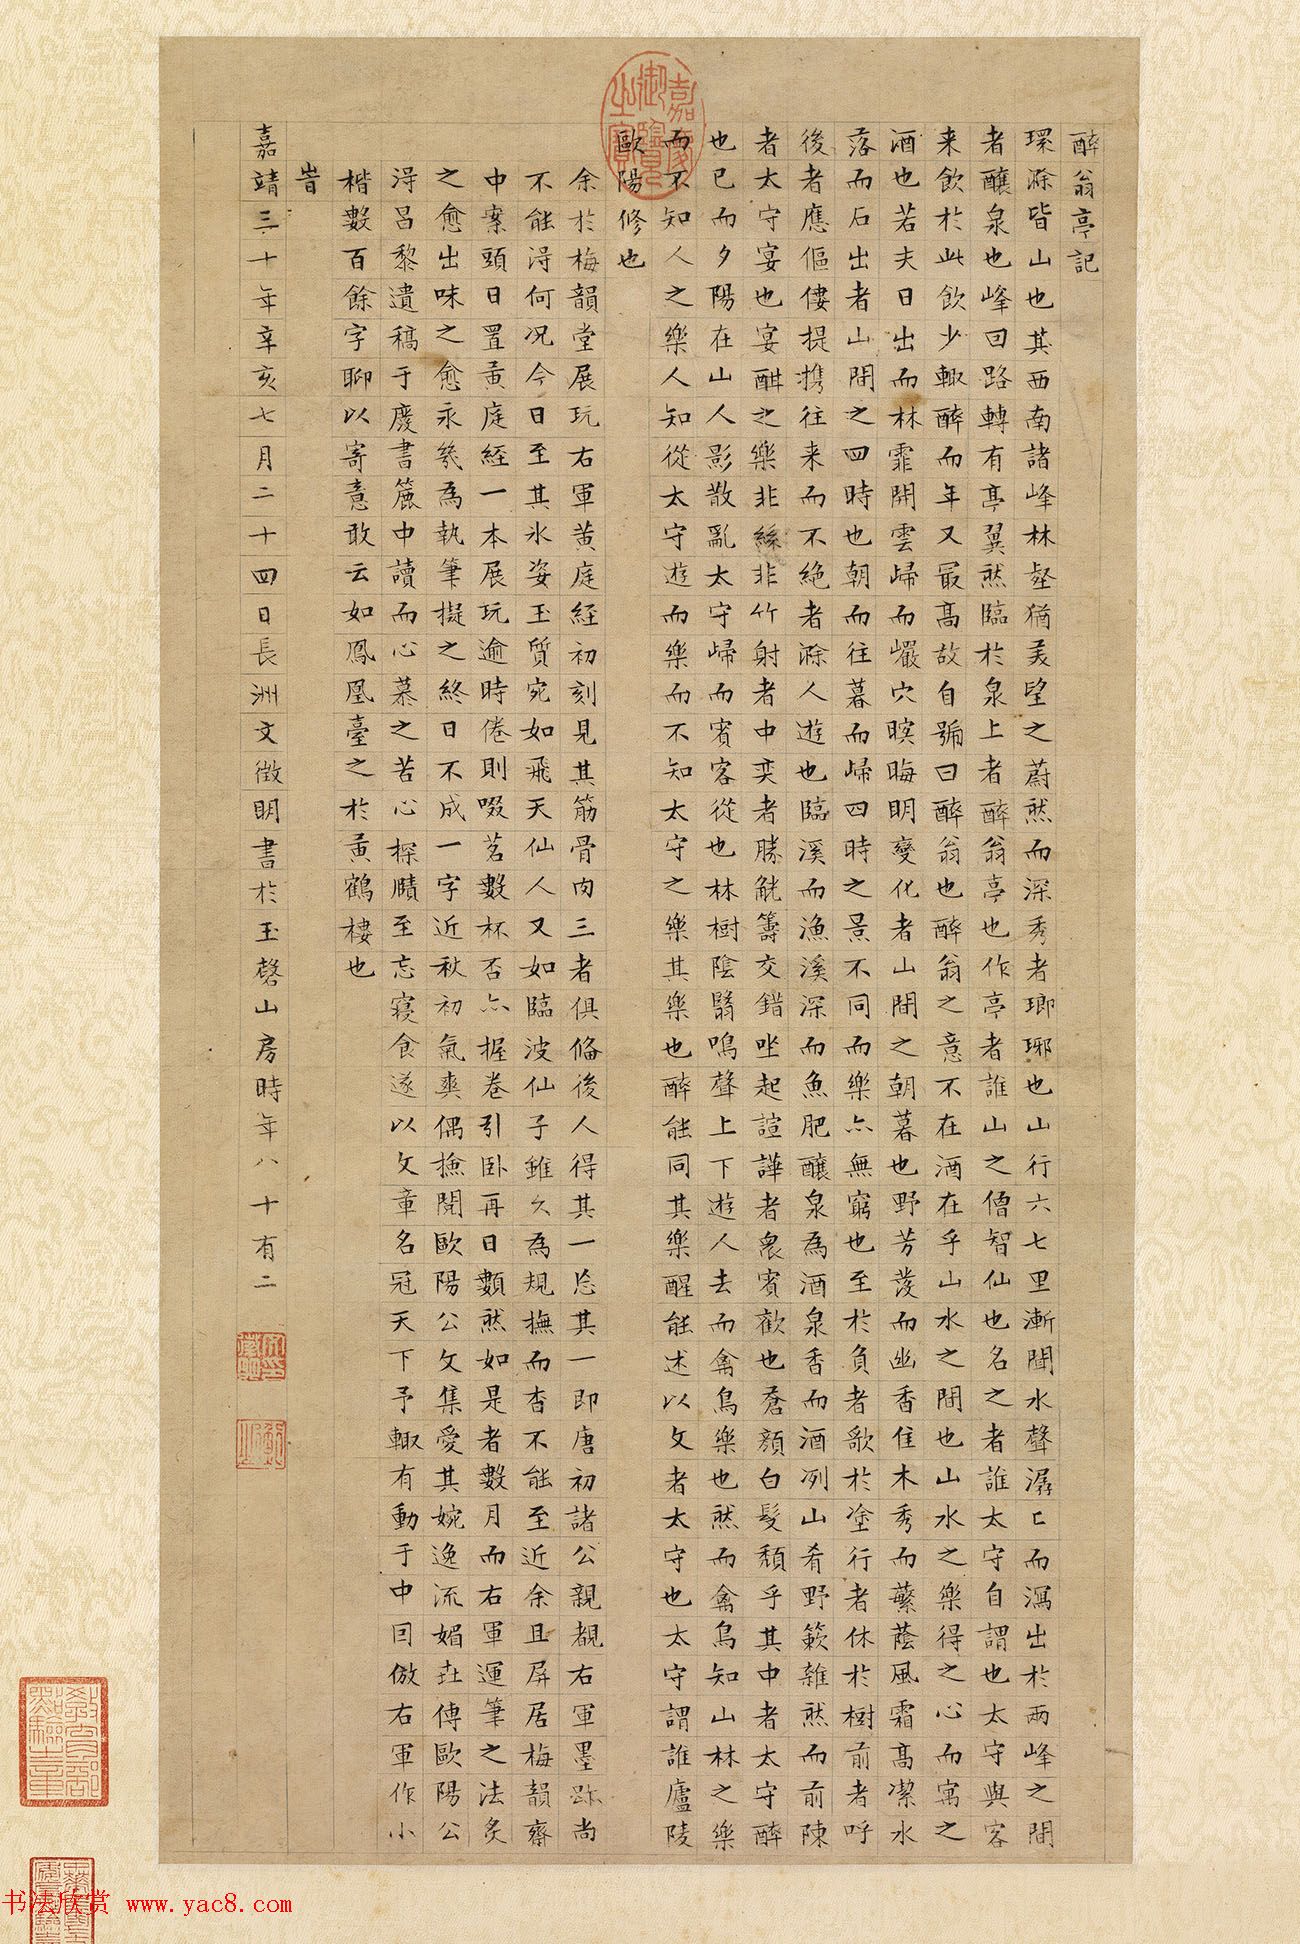 醉翁亭記
環滁皆山也其西南諸峰林壑猶美望之蔚然而深秀者瑯琊也山行六七里漸聞水聲潺〻而瀉出於兩峰之間
者釀泉也峰回路轉有亭翼然臨於泉上者醉翁亭也作亭者誰山之僧智仙也名之者誰太守自謂也太守與客
来飲於此飲少輒醉而年又最高故自號曰醉翁也醉翁之意不在酒在乎山水之間也山水之樂得之心而寓之
酒也若夫日出而林霏開雲歸而巖穴暝晦明變化者山間之朝暮也野芳發而幽香佳木秀而蘩蔭風霜高潔水
落而石出者山間之四時也朝而往暮而歸四時之景不同而樂亦無窮也至於負者歌於塗行者休於樹前者呼
後者應傴僂提攜往来而不絶者滁人遊也臨溪而漁溪深而魚肥釀泉為酒泉香而酒冽山肴野蔌雜然而前陳
者太守宴也宴酣之樂非絲非竹射者中奕者勝觥籌交錯坐起諠譁者衆賓歡也蒼顔白髮頹乎其中者太守醉
也已而夕陽在山人影散亂太守歸而賓客從也林樹陰翳鳴聲上下遊人去而禽鳥樂也然而禽鳥知山林之樂
而不知人之樂人知從太守遊而樂而不知太守之樂其樂也醉能同其樂醒能述以文者太守也太守謂誰廬陵
歐陽修也
余於梅韻堂展玩右軍黄庭經初刻見其筋骨肉三者俱俻後人得其一忘其一即唐初諸公親覩右軍墨跡尚
不能淂何况今日至其氷姿玉質宛如飛天仙人又如臨波仙子雖久為規撫而杳不能至近余且屏居梅韻齋
中案頭日置黄庭經一本展玩逾時倦則啜茗數杯否亦握卷引卧再日數然如是者數月而右軍運筆之法炙
之愈出味之愈永幾為執筆擬之終日不成一字近秋初氣爽偶撿閲歐陽公文集愛其婉逸流媚并傳歐陽公
淂昌黎遺稿于廢書簏中讀而心慕之苦心探賾至忘寝食遂以文章名冠天下予輒有動于中因倣右軍作小
楷數百餘字聊以寄意敢云如鳳凰臺之於黄鶴樓也
旹
嘉靖三十年辛亥七月二十四日長洲文徵明書於玉磬山房時年八十有二
嘉慶御覽之寶
书法欣赏 www.yac8.com